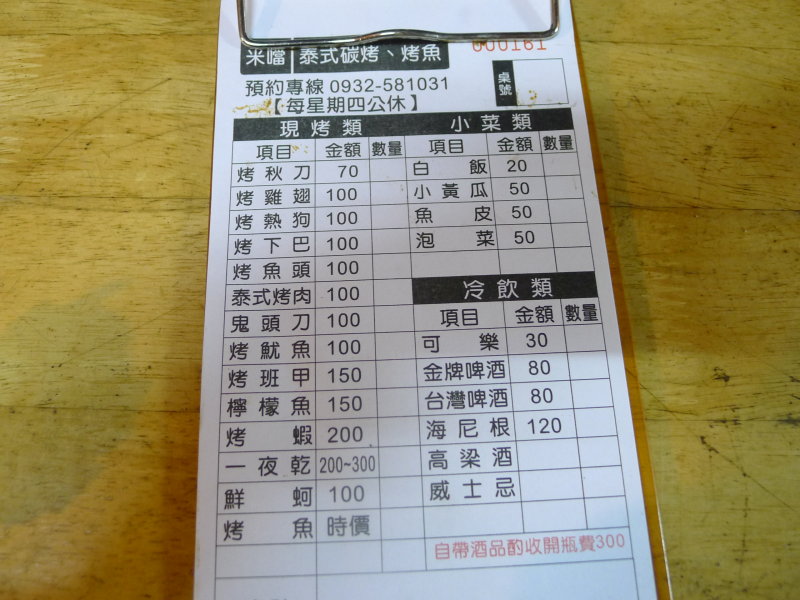 000161
米噹 泰式碳烤、烤魚
預約專線 0932-581031
桌號
【每星期四公休】
現烤類 小菜類
項目 金額 數量 項目 金額 數量
烤秋刀 70 白飯 20
烤雞翅 100 小黃瓜 50
烤熱狗 100 魚皮 50
烤下巴 100 泡菜 50
烤魚頭 100
泰式烤肉 100 冷飲類
鬼頭刀 100 項目 金額 數量
烤魷魚 100 可樂 30
烤班甲 150 金牌啤酒 80
檸檬魚 150 台灣啤酒 80
烤蝦 200 海尼根 120
一夜乾 200~300 高梁酒
鮮蚵 100 威士忌
烤魚 時價
自帶酒品酌收開瓶費300